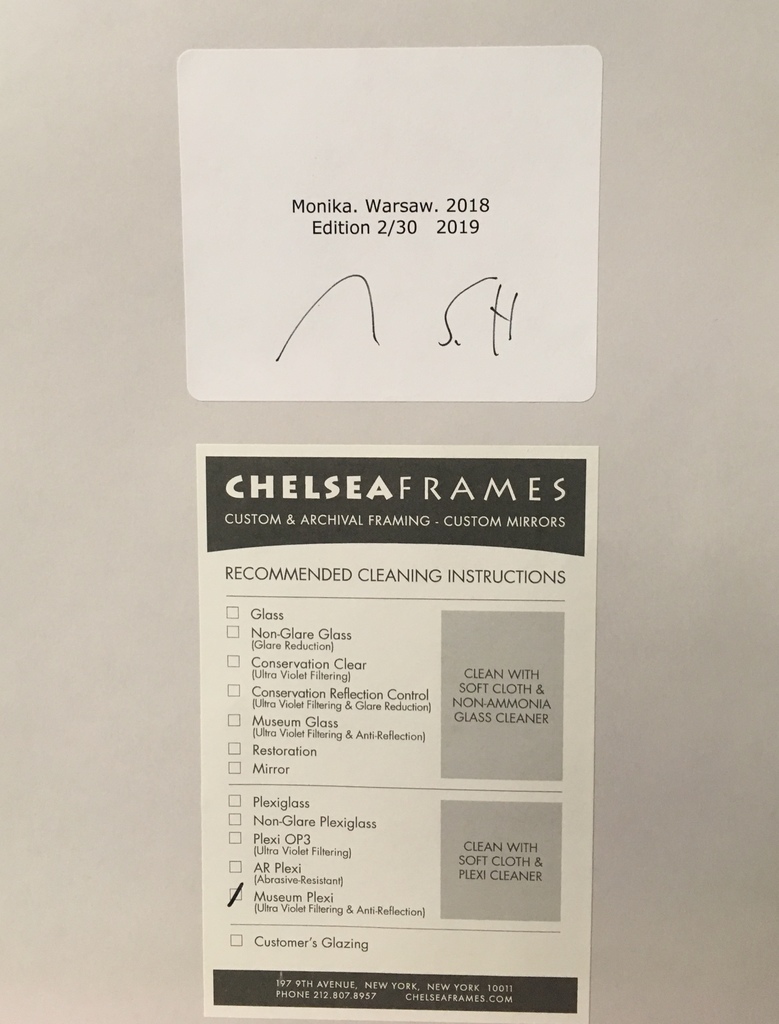 Monika. Warsaw. 2018
Edition 2/30 2019
S. H
CHELSEAFRAMES
CUSTOM & ARCHIVAL FRAMING - CUSTOM MIRRORS
RECOMMENDED CLEANING INSTRUCTIONS
Glass
Non-Glare Glass
(Glare Reduction)
Conservation Clear
(Ultra Violet Filtering)
Conservation Reflection Control
(Ultra Violet Filtering & Glare Reduction)
Museum Glass
(Ultra Violet Filtering & Anti-Reflection)
Restoration
Mirror
CLEAN WITH
SOFT CLOTH &
NON-AMMONIA
GLASS CLEANER
Plexiglass
Non-Glare Plexiglass
Plexi OP3
(Ultra Violet Filtering)
AR Plexi
(Abrasive-Resistant)
Museum Plexi
(Ultra Violet Filtering & Anti-Reflection)
CLEAN WITH
SOFT CLOTH &
PLEXI CLEANER
Customer's Glazing
197 9TH AVENUE, NEW YORK, NEW YORK 10011
PHONE 212.807.8957 CHELSEAFRAMES.COM